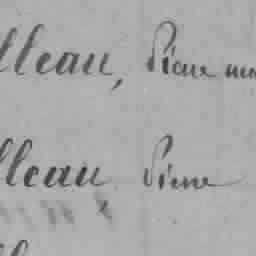 lleau, Pierre
lleau Pierre